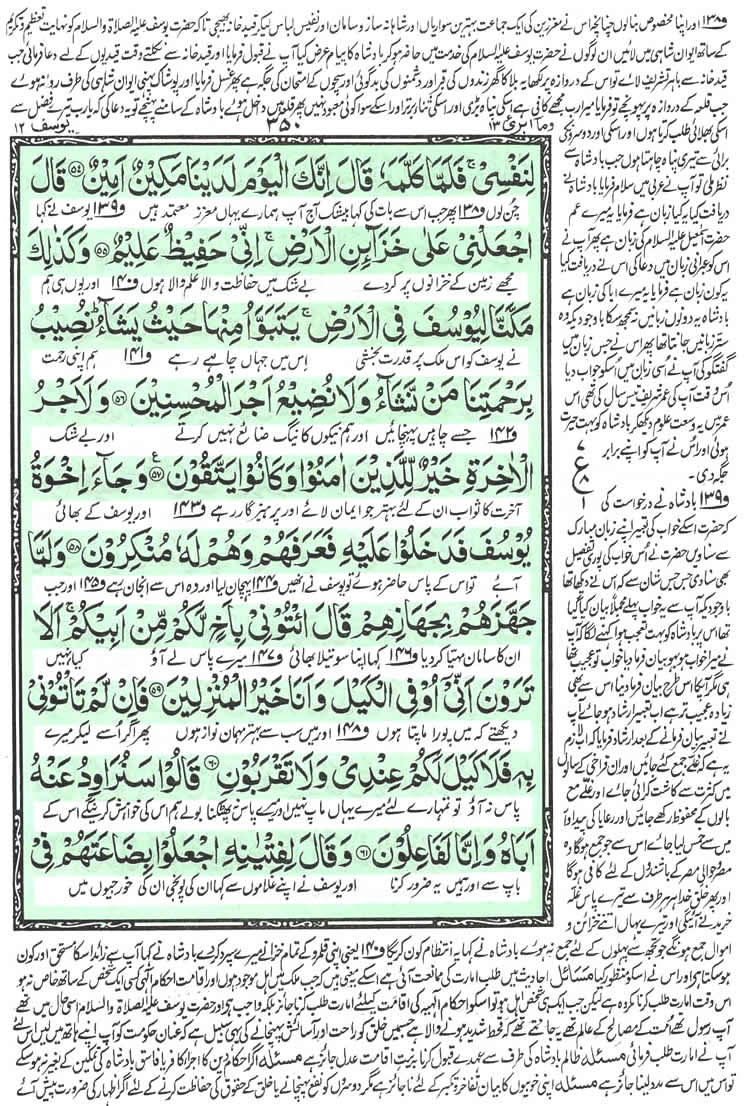 و۱۳۸ اور اپنا مخصوص بنالوں چنانچہ اس نے معززین کی ایک جماعت بہترین سواریاں اور شاہانہ ساز و سامان اور نفیس لباس لیکر قید خانہ بھیجی تاکہ حضرت یوسف علیہ الصلاۃ والسلام کو نہایت تعظیم و تکریم
کے ساتھ ایوان شاہی میں لائیں ان لوگوں نے حضرت یوسف علیہ السلام کی خدمت میں حاضر ہو کر بادشاہ کا پیام عرض کیا آپ نے قبول فرمایا اور قید خانہ سے نکلتے وقت قیدیوں کے لئے دعا فرمائی جب
قید خانہ سے باہر تشریف لائے تو اس کے دروازہ پر لکھا یہ بلا کا گھر زندوں کی قبر اور دشمنوں کی بدگوئی اور سچوں کے امتحان کی جگہ ہے پھر غسل فرمایا اور پوشاک پہنی ایوان شاہی کی طرف روانہ ہوئے
جب قلعہ کے دروازہ پر پہونچے تو فرمایا میرا رب مجھے کافی ہے اسکی پناہ بڑی اور اسکی ثنا برتر اور اسکے سوا کوئی معبود نہیں پھر قلعہ میں داخل ہوئے بادشاہ کے سامنے پہنچے تو یہ دعا کی کہ یارب تیرے فضل سے
وما ابرئ ۱۳ ۳۵۰ یوسف ۱۲
لِنَفْسِیْ ۚ فَلَمَّا كَلَّمَهٗ قَالَ اِنَّكَ الْیَوْمَ لَدَیْنَا مَكِیْنٌ اَمِیْنٌ ﴿۵۴﴾ قَالَ
چن لوں و۱۳۸ پھر جب اس سے بات کی کہا بیشک آج آپ ہمارے یہاں معزز معتمد ہیں و۱۳۹ یوسف نے کہا
اجْعَلْنِیْ عَلٰی خَزَآئِنِ الْاَرْضِ ۚ اِنِّیْ حَفِیْظٌ عَلِیْمٌ ﴿۵۵﴾ وَكَذٰلِكَ
مجھے زمین کے خزانوں پر کر دے بے شک میں حفاظت والا علم والا ہوں و۱۴۰ اور یوں ہی ہم
مَكَّنَّا لِیُوْسُفَ فِی الْاَرْضِ ۚ یَتَبَوَّاُ مِنْهَا حَیْثُ یَشَآءُ ؕ نُصِیْبُ
نے یوسف کو اس ملک پر قدرت بخشی اس میں جہاں چاہے رہے و۱۴۱ ہم اپنی رحمت
بِرَحْمَتِنَا مَنْ نَّشَآءُ وَلَا نُضِیْعُ اَجْرَ الْمُحْسِنِیْنَ ﴿۵۶﴾ وَلَاَجْرُ
و۱۴۲ جسے چاہیں پہنچائیں اور ہم نیکوں کا نیگ ضائع نہیں کرتے اور بے شک
الْاٰخِرَةِ خَیْرٌ لِّلَّذِیْنَ اٰمَنُوْا وَكَانُوْا یَتَّقُوْنَ ﴿۵۷﴾ وَجَآءَ اِخْوَةُ
آخرت کا ثواب ان کے لئے بہتر جو ایمان لائے اور پرہیزگار رہے و۱۴۳ اور یوسف کے بھائی
یُوْسُفَ فَدَخَلُوْا عَلَیْهِ فَعَرَفَهُمْ وَهُمْ لَهٗ مُنْكِرُوْنَ ﴿۵۸﴾ وَلَمَّا
آئے تو اس کے پاس حاضر ہوئے تو یوسف نے انھیں و۱۴۴ پہچان لیا اور وہ اس سے انجان رہے و۱۴۵ اور جب
جَهَّزَهُمْ بِجَهَازِهِمْ قَالَ ائْتُوْنِیْ بِاَخٍ لَّكُمْ مِّنْ اَبِیْكُمْ ۚ اَلَا
ان کا سامان مہیا کر دیا و۱۴۶ کہا اپنا سوتیلا بھائی و۱۴۷ میرے پاس لے آؤ کیا نہیں
تَرَوْنَ اَنِّیْۤ اُوْفِی الْكَیْلَ وَاَنَا خَیْرُ الْمُنْزِلِیْنَ ﴿۵۹﴾ فَاِنْ لَّمْ تَاْتُوْنِیْ
دیکھتے کہ میں پورا ماپتا ہوں و۱۴۸ اور میں سب سے بہتر مہمان نواز ہوں پھر اگر اسے لیکر میرے
بِهٖ فَلَا كَیْلَ لَكُمْ عِنْدِیْ وَلَا تَقْرَبُوْنِ ﴿۶۰﴾ قَالُوْا سَنُرَاوِدُ عَنْهُ
پاس نہ آؤ تو تمہارے لئے میرے یہاں ماپ نہیں اور میرے پاس نہ پھٹکنا بولے ہم اس کی خواہش کریں گے اس کے
اَبَاهُ وَاِنَّا لَفٰعِلُوْنَ ﴿۶۱﴾ وَقَالَ لِفِتْیٰنِهِ اجْعَلُوْا بِضَاعَتَهُمْ فِیْ
باپ سے اور ہمیں یہ ضرور کرنا اور یوسف نے اپنے غلاموں سے کہا ان کی پونجی ان کی خورجیوں میں
اسکی بھلائی طلب کرتا ہوں اور اسکی اور دوسروں کی
برائی سے تیری پناہ چاہتا ہوں جب بادشاہ سے
نظر ملی تو آپ نے عربی میں سلام فرمایا بادشاہ نے
دریافت کیا یہ کیا زبان ہے فرمایا یہ میرے عم
حضرت اسمٰعیل علیہ السلام کی زبان ہے پھر آپ نے
اس کو عبرانی زبان میں دعا کی اس نے دریافت کیا
یہ کون زبان ہے فرمایا یہ میرے ابا کی زبان ہے
بادشاہ یہ دونوں زبانیں نہ سمجھ سکا باوجودیکہ وہ
ستر زبانیں جانتا تھا پھر اس نے جس زبان میں
گفتگو کی آپ نے اسی زبان میں اسکو جواب دیا
اس وقت آپ کی عمر شریف تیس سال کی تھی اس
عمر میں یہ وسعت علوم دیکھ کر بادشاہ کو بہت حیرت
ہوئی اور اس نے آپ کو اپنے برابر
جگہ دی۔
ع
و۱۳۹ بادشاہ نے درخواست کی
کہ حضرت اسکے خواب کی تعبیر اپنے زبان مبارک
سے سنادیں حضرت نے اس خواب کی پوری تفصیل
بھی سنادی جس جس شان سے کہ اس نے دیکھا تھا
باوجودیکہ آپ سے یہ خواب پہلے مجملاً بیان کیا گیا
تھا اس پر بادشاہ کو بہت تعجب ہوا کہنے لگا کہ آپ
نے میرا خواب ہو بہو بیان فرمادیا خواب تو عجیب تھا
ہی مگر آپ کا اس طرح بیان فرمادینا اس سے بھی
زیادہ عجیب تر ہے اب تعبیر ارشاد ہو جائے آپ
نے تعبیر بیان فرمانے کے بعد ارشاد فرمایا کہ اب لازم
یہ ہے کہ غلے جمع کئے جائیں اور ان فراخی کے سالوں
میں کثرت سے کاشت کرائی جائے اور غلے مع
بالوں کے محفوظ رکھے جائیں اور رعایا کی پیداوار
میں سے خمس لیا جائے اس سے جو جمع ہوگا وہ
مصر و حوالی مصر کے باشندوں کے لئے کافی ہوگا
اور پھر خلق خدا ہر طرف سے تیرے پاس غلہ
خریدنے آئیگی اور تیرے یہاں اتنے خزائن و
اموال جمع ہونگے جو تجھ سے پہلوں کے لئے جمع نہ ہوئے بادشاہ نے کہا یہ انتظام کون کرے گا و۱۴۰ یعنی اپنی قلمرو کے تمام خزانے میرے سپرد کر دے بادشاہ نے کہا آپ سے زائد اسکا مستحق اور کون
ہوسکتا ہے اور اس نے اسکو منظور کیا مسائل احادیث میں طلب امارت کی ممانعت آئی ہے اسکے یہ معنی ہیں کہ جب ملک میں اہل موجود ہوں اور اقامت احکام الٰہی کسی ایک شخص کے ساتھ خاص نہ ہو
اس وقت امارت طلب کرنا مکروہ ہے لیکن جب ایک ہی شخص اہل ہو تو اسکو احکام الٰہیہ کی اقامت کیلئے امارت طلب کرنا جائز بلکہ واجب ہے اور حضرت یوسف علیہ الصلاۃ والسلام اسی حال میں تھے
آپ رسول تھے امت کے مصالح کے عالم تھے یہ جانتے تھے کہ قحط شدید ہونے والا ہے جس میں خلق کو راحت اور آسائش پہنچانے کی یہی سبیل ہے کہ عنان حکومت کو آپ اپنے ہاتھ میں لیں اس لئے
آپ نے امارت طلب فرمائی مسئلہ ظالم بادشاہ کی طرف سے عہدے قبول کرنا بہ نیت اقامت عدل جائز ہے مسئلہ اگر احکام دین کا اجرا کافر یا فاسق بادشاہ کی تمکین کے بغیر نہ ہو سکے
تو اس میں اس سے مدد لینا جائز ہے مسئلہ اپنی خوبیوں کا بیان تفاخر و تکبر کے لئے ناجائز ہے مگر دوسروں کو نفع پہنچانے یا خلق کے حقوق کی حفاظت کرنے کے لئے اگر اظہار کی ضرورت پیش آئے